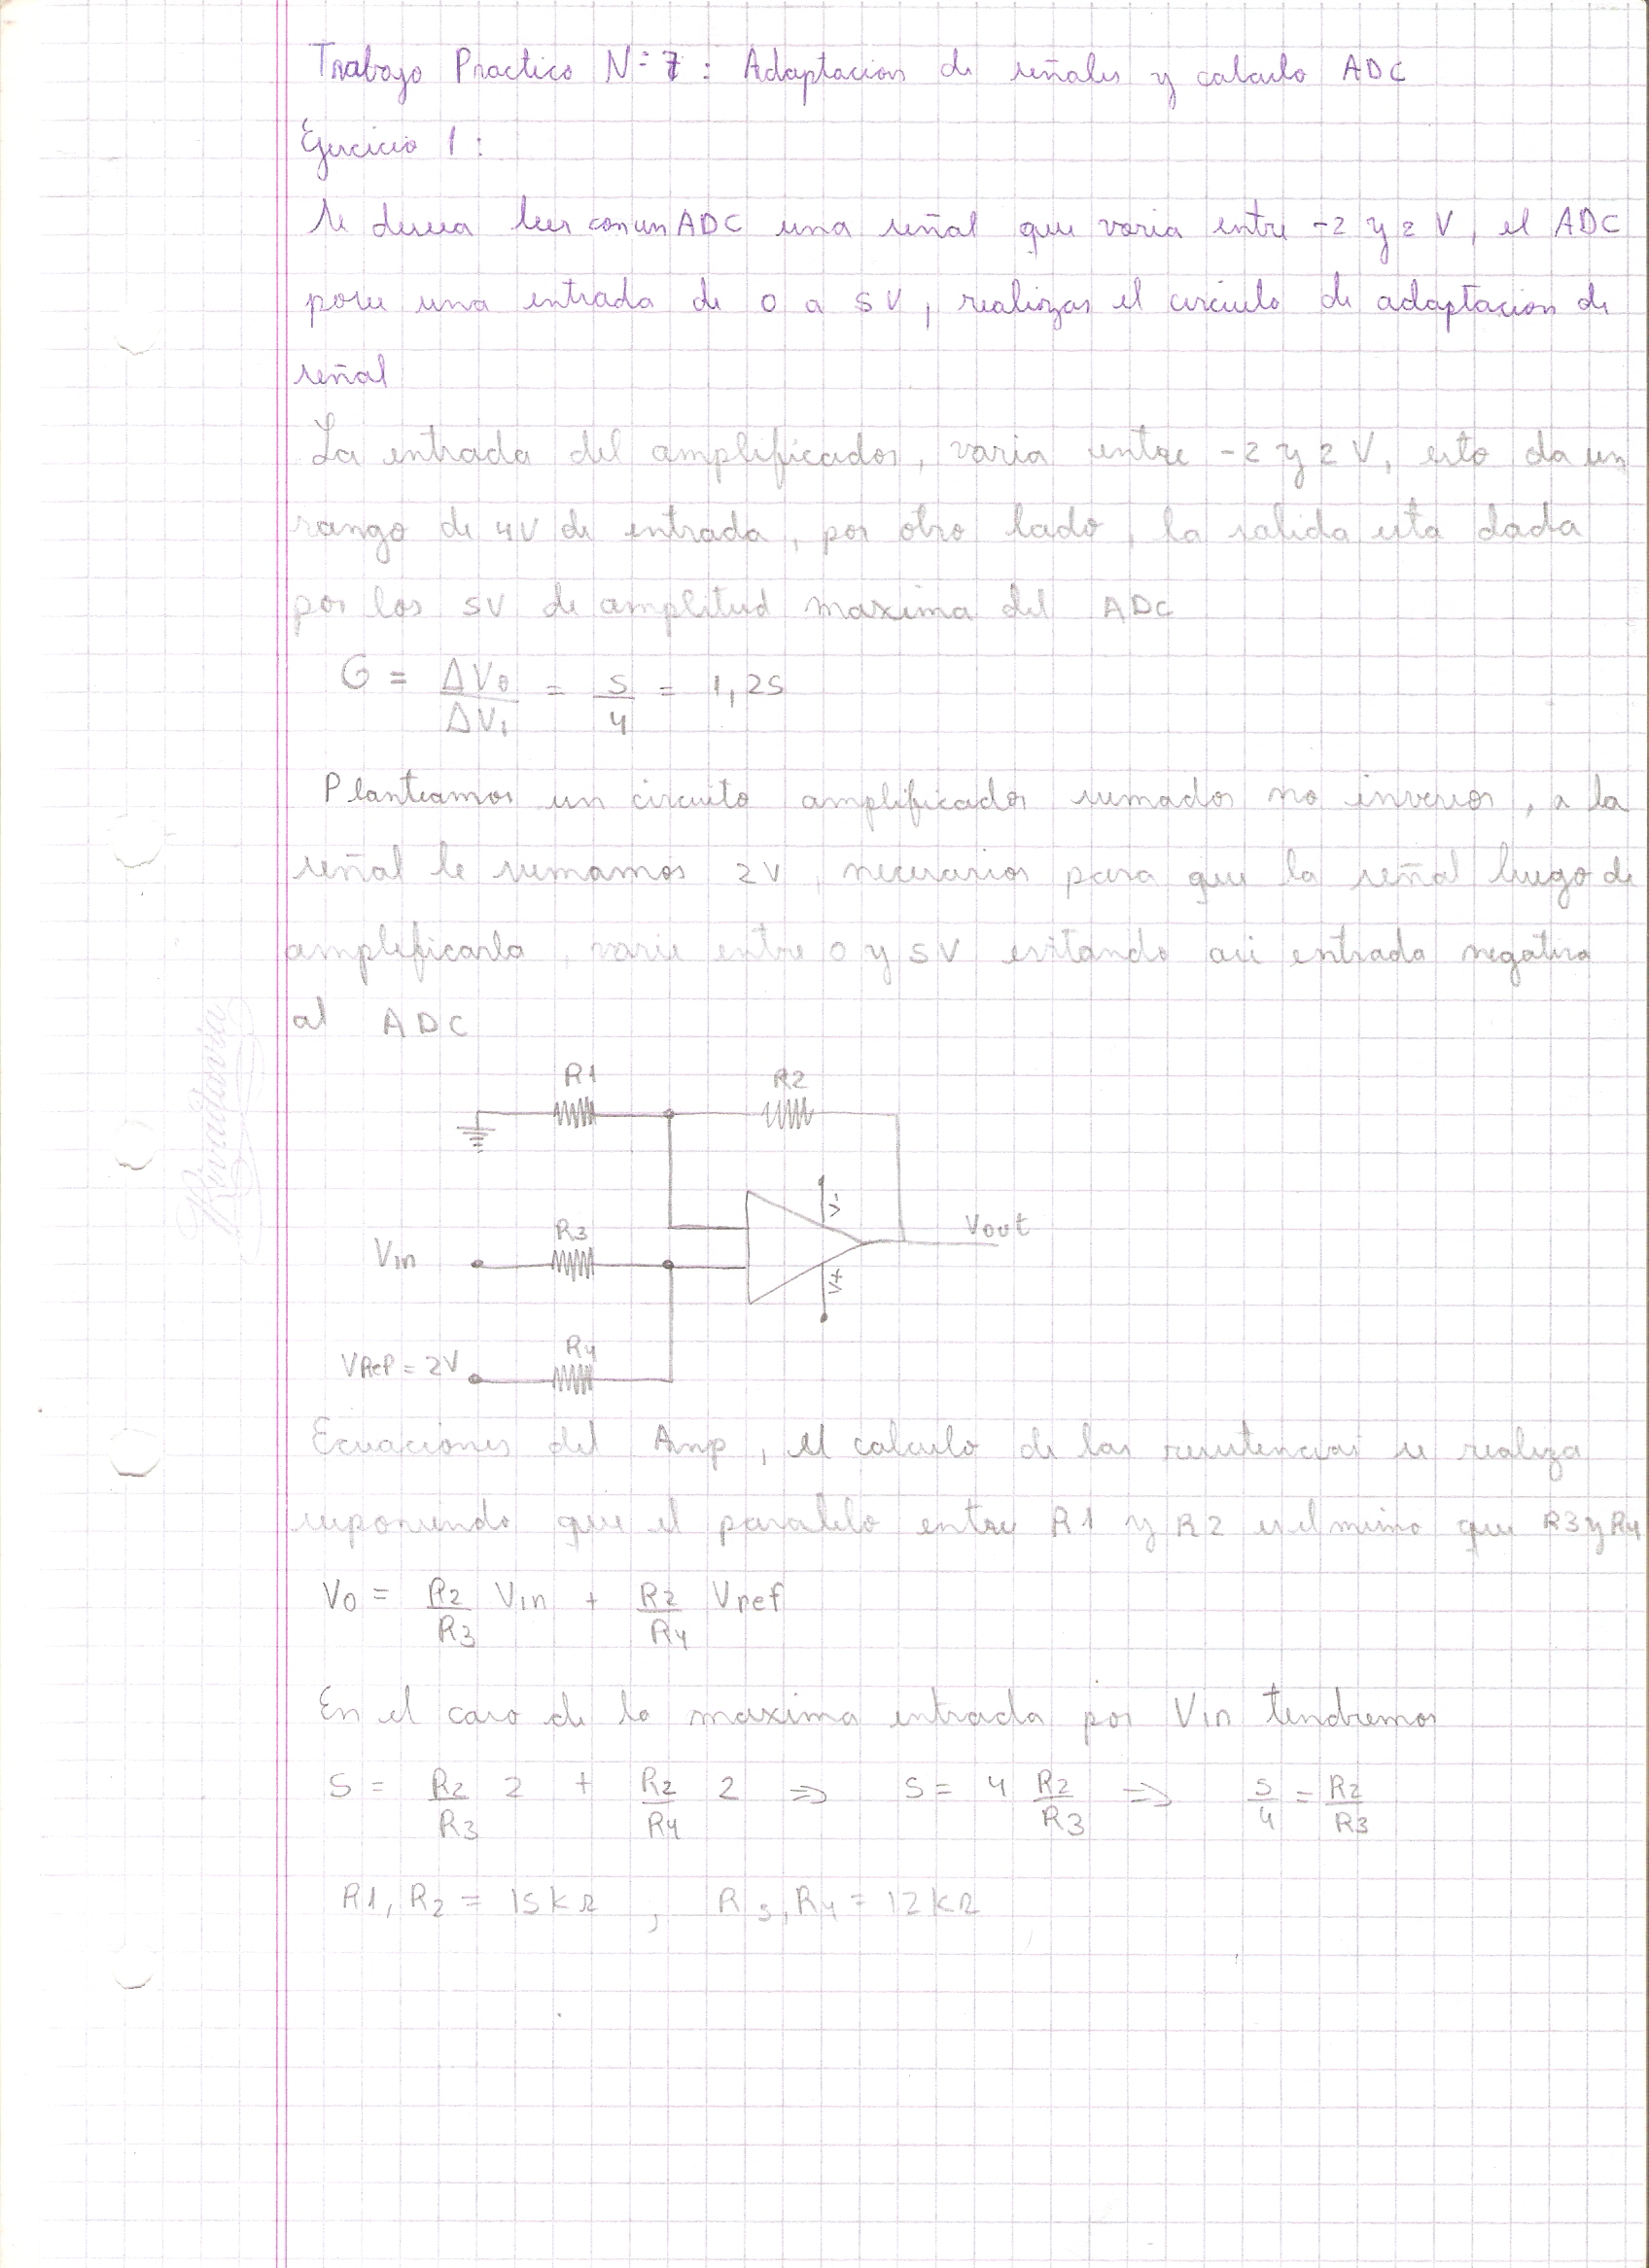 Trabajo Practico N=7: Adaptacion de señales y calculo ADC
Ejercicio 1:
Se desea leer con un ADC una señal que varia entre -2 y 2 V, el ADC
posee una entrada de 0 a 5V, realizar el circuito de adaptacion de
señal
La entrada del amplificador, varia entre -2 y 2 V, esto da un
rango de 4V de entrada, por otro lado, la salida esta dada
por los 5V de amplitud maxima del ADC
G = ΔVo/ΔVi = 5/4 = 1,25
Planteamos un circuito amplificador sumador no inversor, a la
señal le sumamos 2V, necesarios para que la señal luego de
amplificarla, varie entre 0 y 5V evitando asi entrada negativa
al ADC
Rivadavia
R1 R2
V-
R3
Vin
Vout
V+
R4
VReP = 2V
Ecuaciones del Amp, el calculo de las resistencias se realiza
suponiendo que el paralelo entre R1 y R2 es el mismo que R3 y R4
Vo = R2/R3 Vin + R2/R4 Vref
En el caso de la maxima entrada por Vin tendremos
5 = R2/R3 2 + R2/R4 2 => 5 = 4 R2/R3 => 5/4 = R2/R3
R1, R2 = 15kΩ , R3, R4 = 12kΩ